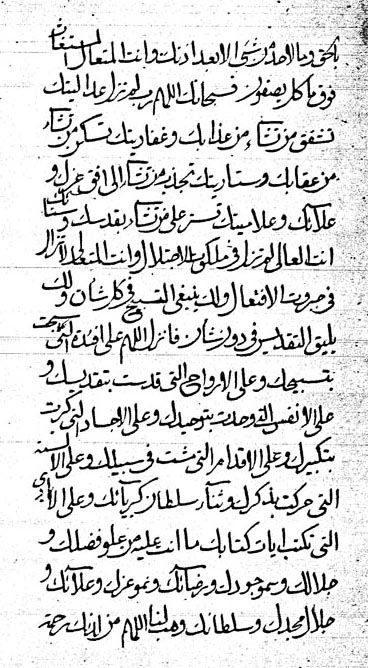 بالحق وما لاحد من شیء الا بعد اذنك وانت المتعال المستغاث
فوق ما كل يصفون فسبحانك اللهم رب لم تزل عداليتك
تشفق من تشاء من عذابك وغفاريتك تسكن من تشاء
من عقابك وستاريتك تجذب من تشاء الى افق عزك و
علائك وعلاميتك تستر على من تشاء بقدسك وسنائك
انت العالى لم تزل فى ملكوت الاجلال وانت المتعالى لا تزال
فى جبروت الافتعال ولك ينبغى التسبيح فى كل شان ولك
يليق التقديس فى دون شان فانزل اللهم على افئدة التى سبحت
بتسبيحك وعلى الارواح التى قدست بتقديسك و
على الانفس التى وحدت بتوحيدك وعلى الاجساد التى كبرت
بتكبيرك وعلى الاقدام التى مشت فى سبيلك وعلى الالسنة
التى حركت بذكرك وثناء سلطان كبريائك وعلى الايادى
التى تكتب ايات كتابك ما انت عليه من علو فضلك و
جلالك وسمو جودك ورضائك ونمو عزك وعلائك و
جلال مجدك وسلطانك وهب لنا اللهم من لدنك رحمة